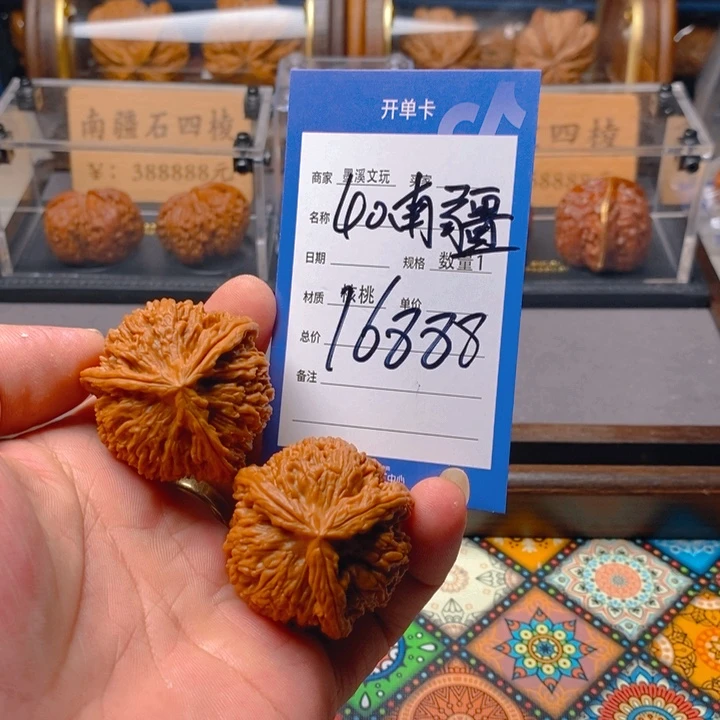 南疆石四棱
¥：388888元
四棱
开单卡
商家 墨溪文玩
名称 40.南疆
日期 规格 数量1
材质 核桃 单价
总价 16888
备注
中心